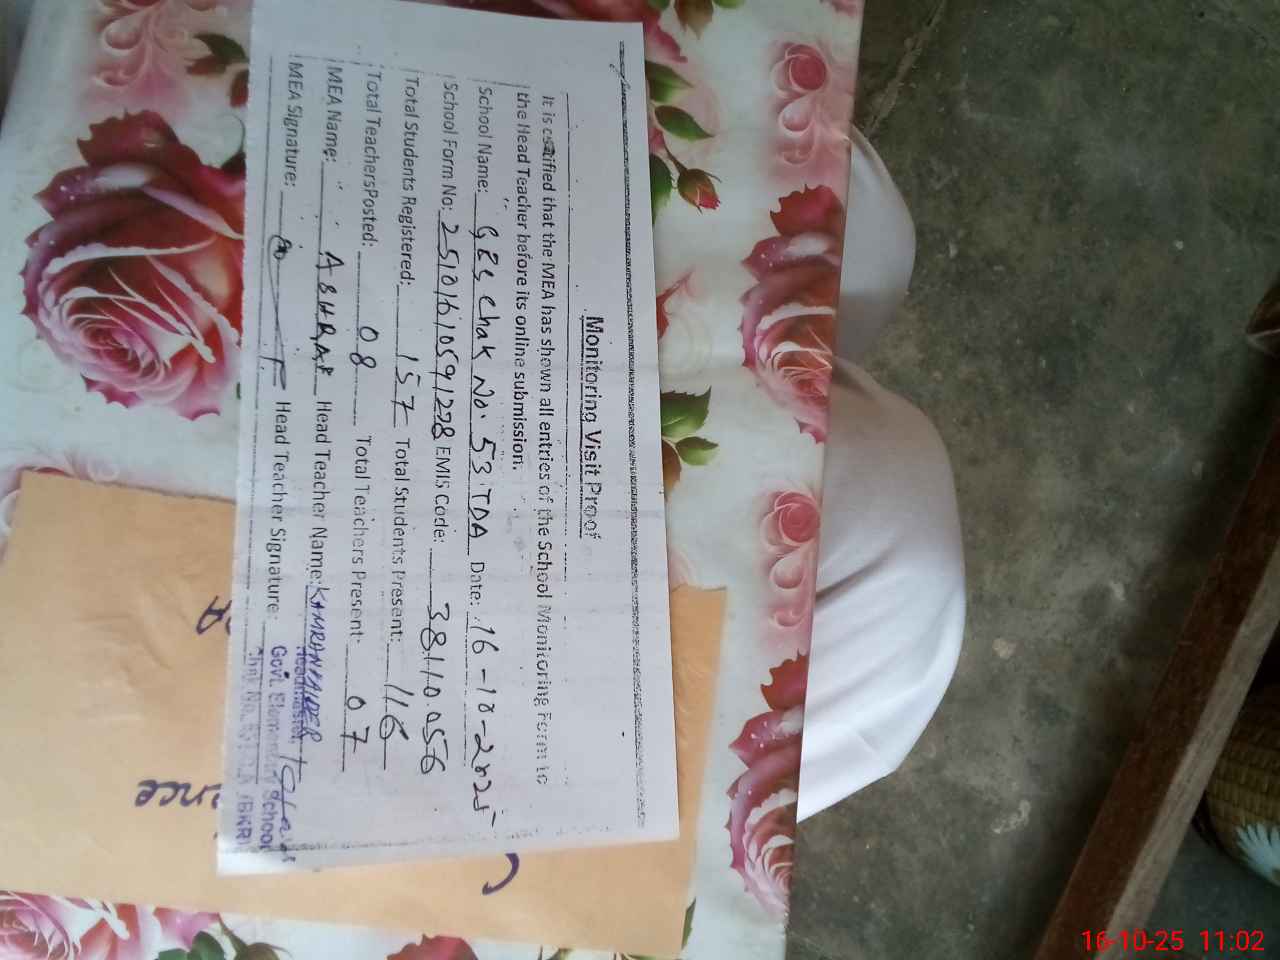 Monitoring Visit Proof
It is certified that the MEA has shown all entries of the School Monitoring Form to
the Head Teacher before its online submission.
School Name: GES Chak No. 53 TDA Date: 16-10-2025
School Form No: 25101610591278 EMIS Code: 38110056
Total Students Registered: 157 Total Students Present: 116
Total TeachersPosted: 08 Total Teachers Present: 07
MEA Name: ASHRAF Head Teacher Name: KAMRAN HAIDER
MEA Signature: Head Teacher Signature:
Headmaster
Govt. Elementary School
Chak No. 53 TDA (BKR)
16-10-25 11:02